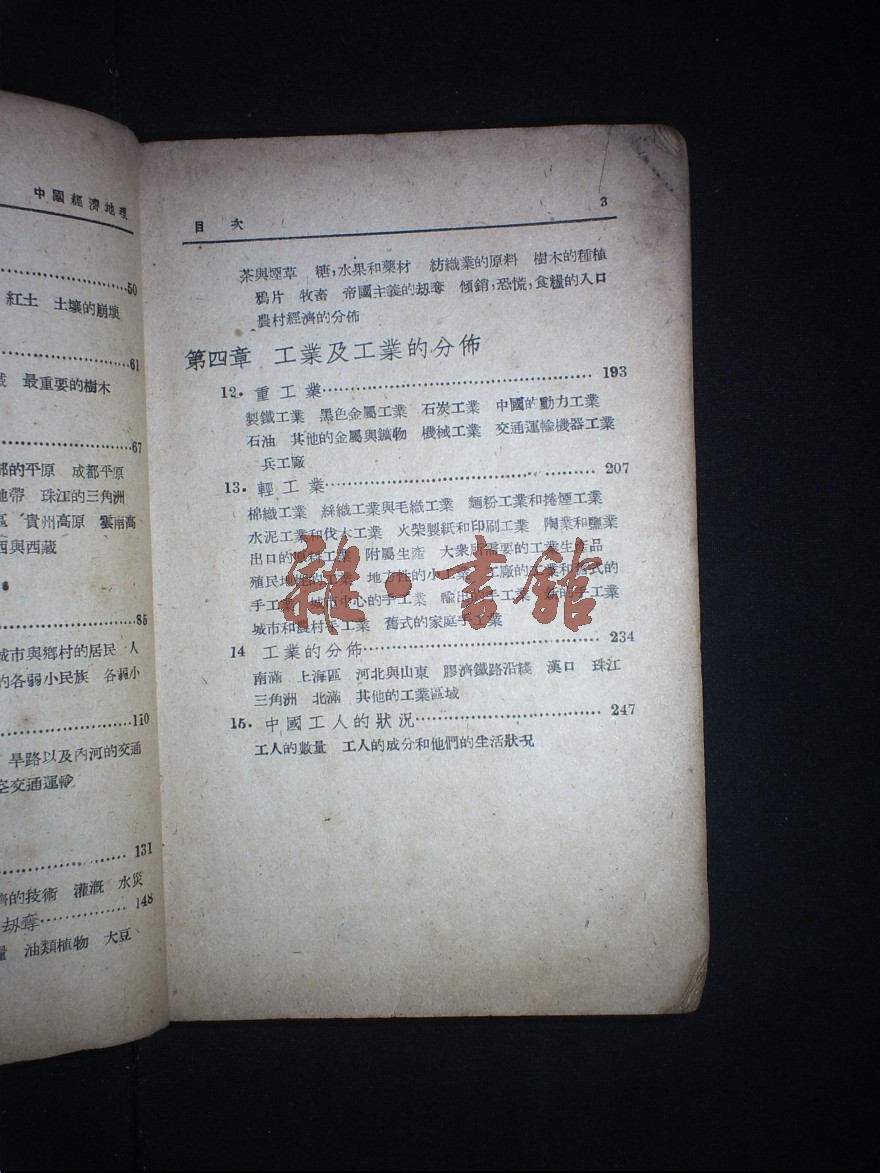 中國經濟地理
50
紅土 土壤的崩壞
61
最重要的樹木
67
的平原 成都平原
地帶 珠江的三角洲
區 貴州高原 雲南高
西與西藏
85
城市與鄉村的居民 人
的各弱小民族 各弱小
110
旱路以及內河的交通
空交通運輸
131
的技術 灌漑 水災
劫奪 148
油類植物 大豆
目 次 3
茶與煙草 糖,水果和藥材 紡織業的原料 樹木的種植
鴉片 牧畜 帝國主義的刼奪 傾銷,恐慌,食糧的入口
農村經濟的分佈
第四章 工業及工業的分佈
12. 重工業 193
製鐵工業 黑色金屬工業 石炭工業 中國的動力工業
石油 其他的金屬與鑛物 機械工業 交通運輸機器工業
兵工廠
13. 輕工業 207
棉織工業 絲織工業與毛織工業 麵粉工業和捲煙工業
水泥工業和伐木工業 火柴製紙和印刷工業 陶業和鹽業
出口的原料工業 附屬生產 大衆所需要的工業生產品
殖民地性的工業 地方性的小工業 工廠的工業和舊式的
手工業 城市中心的手工業 輸出的手工業 的手工業
城市和農村手工業 舊式的家庭手工業
雜·書館
14 工業的分佈 234
南滿 上海區 河北與山東 膠濟鐵路沿綫 漢口 珠江
三角洲 北滿 其他的工業區域
15. 中國工人的狀況 247
工人的數量 工人的成分和他們的生活狀況